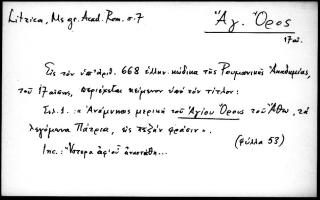 Litzica, Ms gr. Acad. Rom. σ. 7
Ἅγ. Ὄρος
17 αἰ.
Εἰς τὸν ὑπ' ἀριθ. 668 ἑλλην. κώδικα τῆς Ρουμανικῆς Ἀκαδημίας,
τοῦ 17 αἰῶνος, περιέχεται κείμενον ὑπὸ τὸν τίτλον:
Σελ. 1. «Ἀνάμνησις μερικὴ τοῦ Ἁγίου Ὄρους τοῦ Ἄθω, τὰ
λεγόμενα Πάτρια, εἰς πεζὴν φράσιν».
(φύλλα 53)
Inc.: Ὕστερα ἀφ' οὗ ἀνεστάθη...